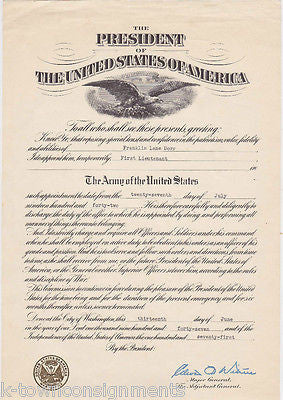 THE
PRESIDENT
OF
THE UNITED STATES OF AMERICA
To all who shall see these presents, greeting:
Know Ye, that reposing special trust and confidence in the patriotism, valor, fidelity
and abilities of Franklin Lane Dory
I do appoint him, temporarily, First Lieutenant
in
The Army of the United States
such appointment to date from the twenty-seventh day of July
nineteen hundred and forty-two. He is therefore carefully and diligently to
discharge the duty of the office to which he is appointed by doing and performing all
manner of things thereunto belonging.
And I do strictly charge and require all Officers and Soldiers under his command
when he shall be employed on active duty to be obedient to his orders as an officer of his
grade and position. And he is to observe and follow such orders and directions, from time
to time, as may be given by me, or the future President of the United States of
America, or the General or other Superior Officers set over him, according to the rules
and discipline of War.
This Commission to continue in force during the pleasure of the President of the United
States for the time being and for the duration of the present emergency and for six
months thereafter unless sooner terminated.
Done at the City of Washington this thirteenth day of June
in the year of our Lord one thousand nine hundred and forty-seven and of the
Independence of the United States of America the one hundred and seventy-first.
By the President:
Major General,
The Adjutant General.
k-townconsignments